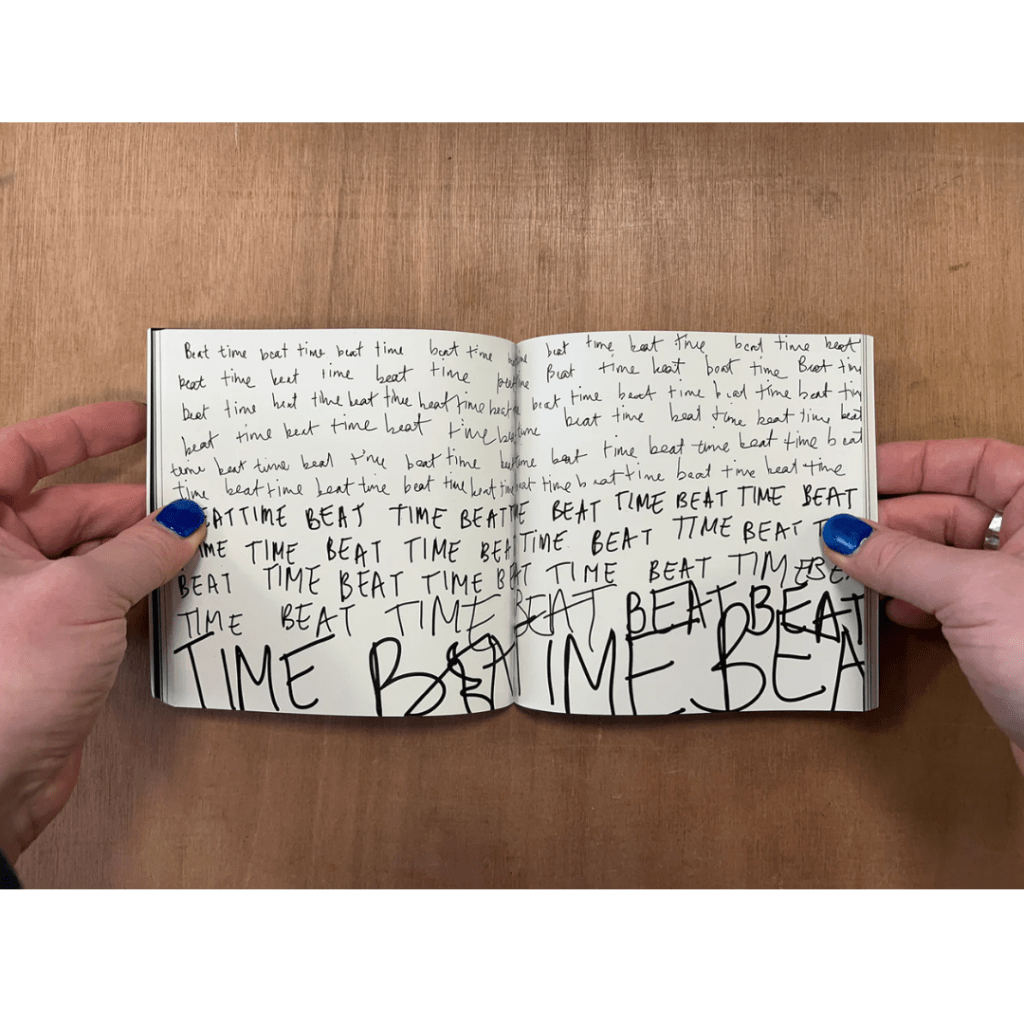 Beat time beat time beat time beat time beat time beat time beat time
beat time beat time beat time Beat time beat boat time Beat time
beat time beat time beat time beat time beat time beat time beat time beat time beat time
beat time beat time beat time beat time beat time beat time beat time beat
time beat time beat time beat time beat time beat time beat time beat time beat
time beat time beat time beat time beat time beat time beat time beat time beat time
BEAT TIME BEAT TIME BEAT TIME BEAT TIME BEAT TIME BEAT
TIME TIME BEAT TIME BEAT TIME BEAT TIME BEAT
BEAT TIME BEAT TIME BEAT TIME BEAT TIME BEAT
TIME BEAT TIME BEAT BEAT BEAT
TIME BEAT TIME BEA